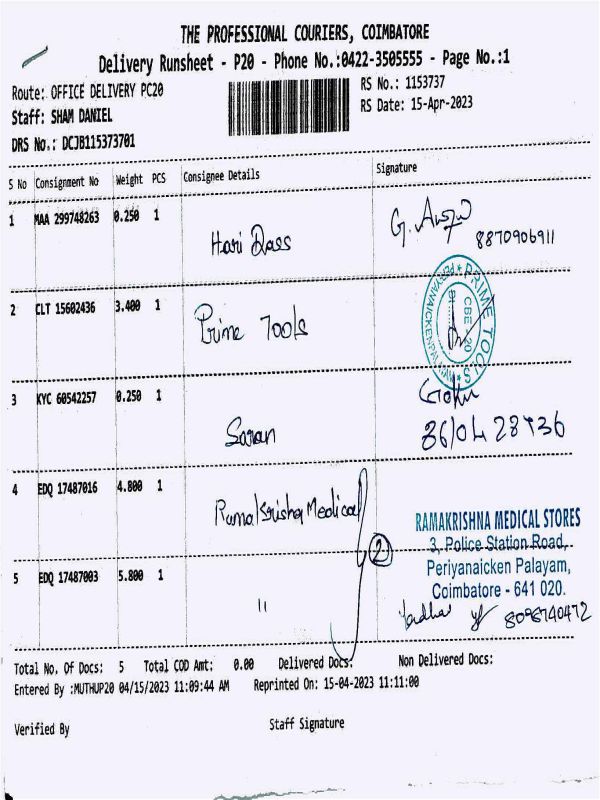 THE PROFESSIONAL COURIERS, COIMBATORE
Delivery Runsheet - P20 - Phone No.:0422-3505555 - Page No.:1
Route: OFFICE DELIVERY PC20
RS No.: 1153737
Staff: SHAM DANIEL
RS Date: 15-Apr-2023
DRS No.: DCJB115373701
S No Consignment No Weight PCS Consignee Details Signature
1 MAA 299748263 0.250 1 Hari Dass G. 8870906911
2 CLT 15602436 3.400 1 Prime Tools PRIME TOOLS CBE 20
3 KYC 60542257 0.250 1 Saran Gokul
4 EDQ 17487016 4.800 1 Ramakrishna Medical
2
RAMAKRISHNA MEDICAL STORES
3, Police Station Road,
Periyanaicken Palayam,
Coimbatore - 641 020.
5 EDQ 17487003 5.800 1 "
8098740472
Total No. Of Docs: 5 Total COD Amt: 0.00 Delivered Docs: Non Delivered Docs:
Entered By :MUTHUP20 04/15/2023 11:09:44 AM Reprinted On: 15-04-2023 11:11:00
Verified By Staff Signature